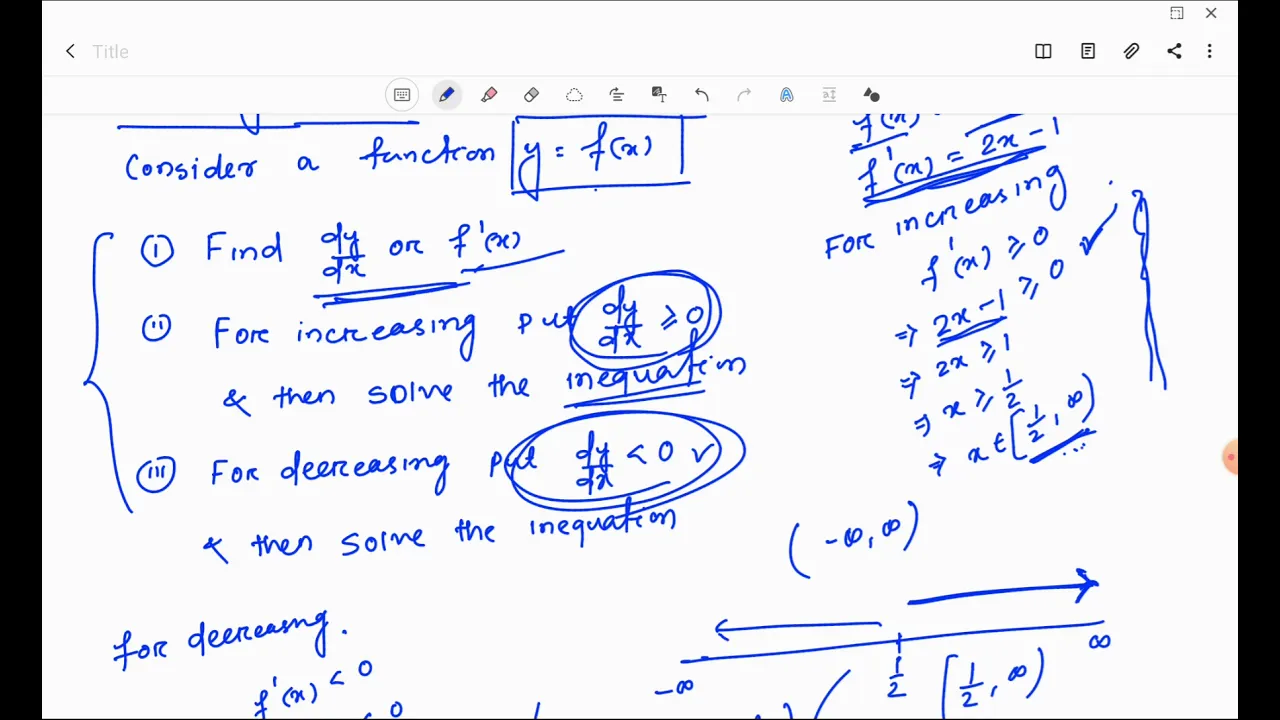 Title
Consider a function y = f(x)
(i) Find dy/dx or f'(x)
(ii) For increasing put dy/dx ≥ 0
& then solve the inequation
(iii) For decreasing put dy/dx < 0 ✓
& then solve the inequation
for decreasing.
f'(x) < 0
< 0
f(x)
f'(x) = 2x - 1
For increasing
f'(x) ≥ 0 ✓
⇒ 2x - 1 ≥ 0
⇒ 2x ≥ 1
⇒ x ≥ 1/2
⇒ x ∈ [1/2, ∞)
(-∞, ∞)
-∞ 1/2 ∞
[1/2, ∞)